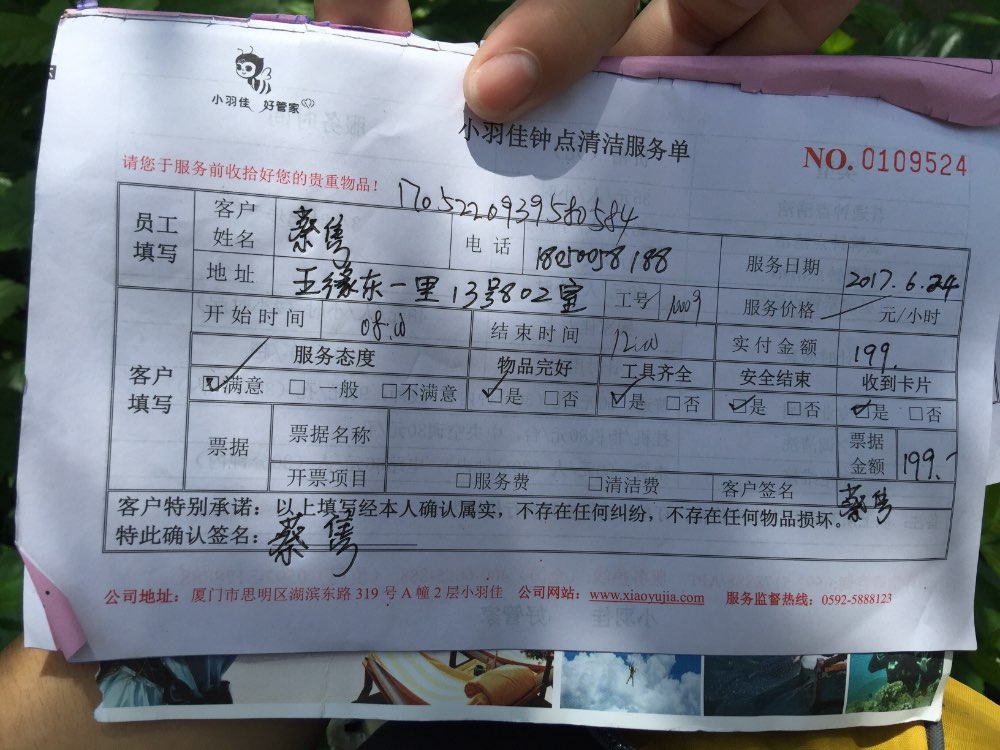 小羽佳 好管家
小羽佳钟点清洁服务单
NO. 0109524
请您于服务前收拾好您的贵重物品！
1705220939580584
员工填写 客户姓名 蔡隽 电话 18050058188 服务日期 2017.6.24
地址 王缘东一里13号802室 工号 服务价格 元/小时
客户填写 开始时间 08:00 结束时间 12:00 实付金额 199.
服务态度 物品完好 工具齐全 安全结束 收到卡片
☑满意 □一般 □不满意 ☑是 □否 ☑是 □否 ☑是 □否 ☑是 □否
票据 票据名称 票据金额 199.-
开票项目 □服务费 □清洁费 客户签名 蔡隽
客户特别承诺：以上填写经本人确认属实，不存在任何纠纷，不存在任何物品损坏。
特此确认签名：蔡隽
公司地址：厦门市思明区湖滨东路 319 号 A 幢 2 层小羽佳 公司网站：www.xiaoyujia.com 服务监督热线：0592-5888123